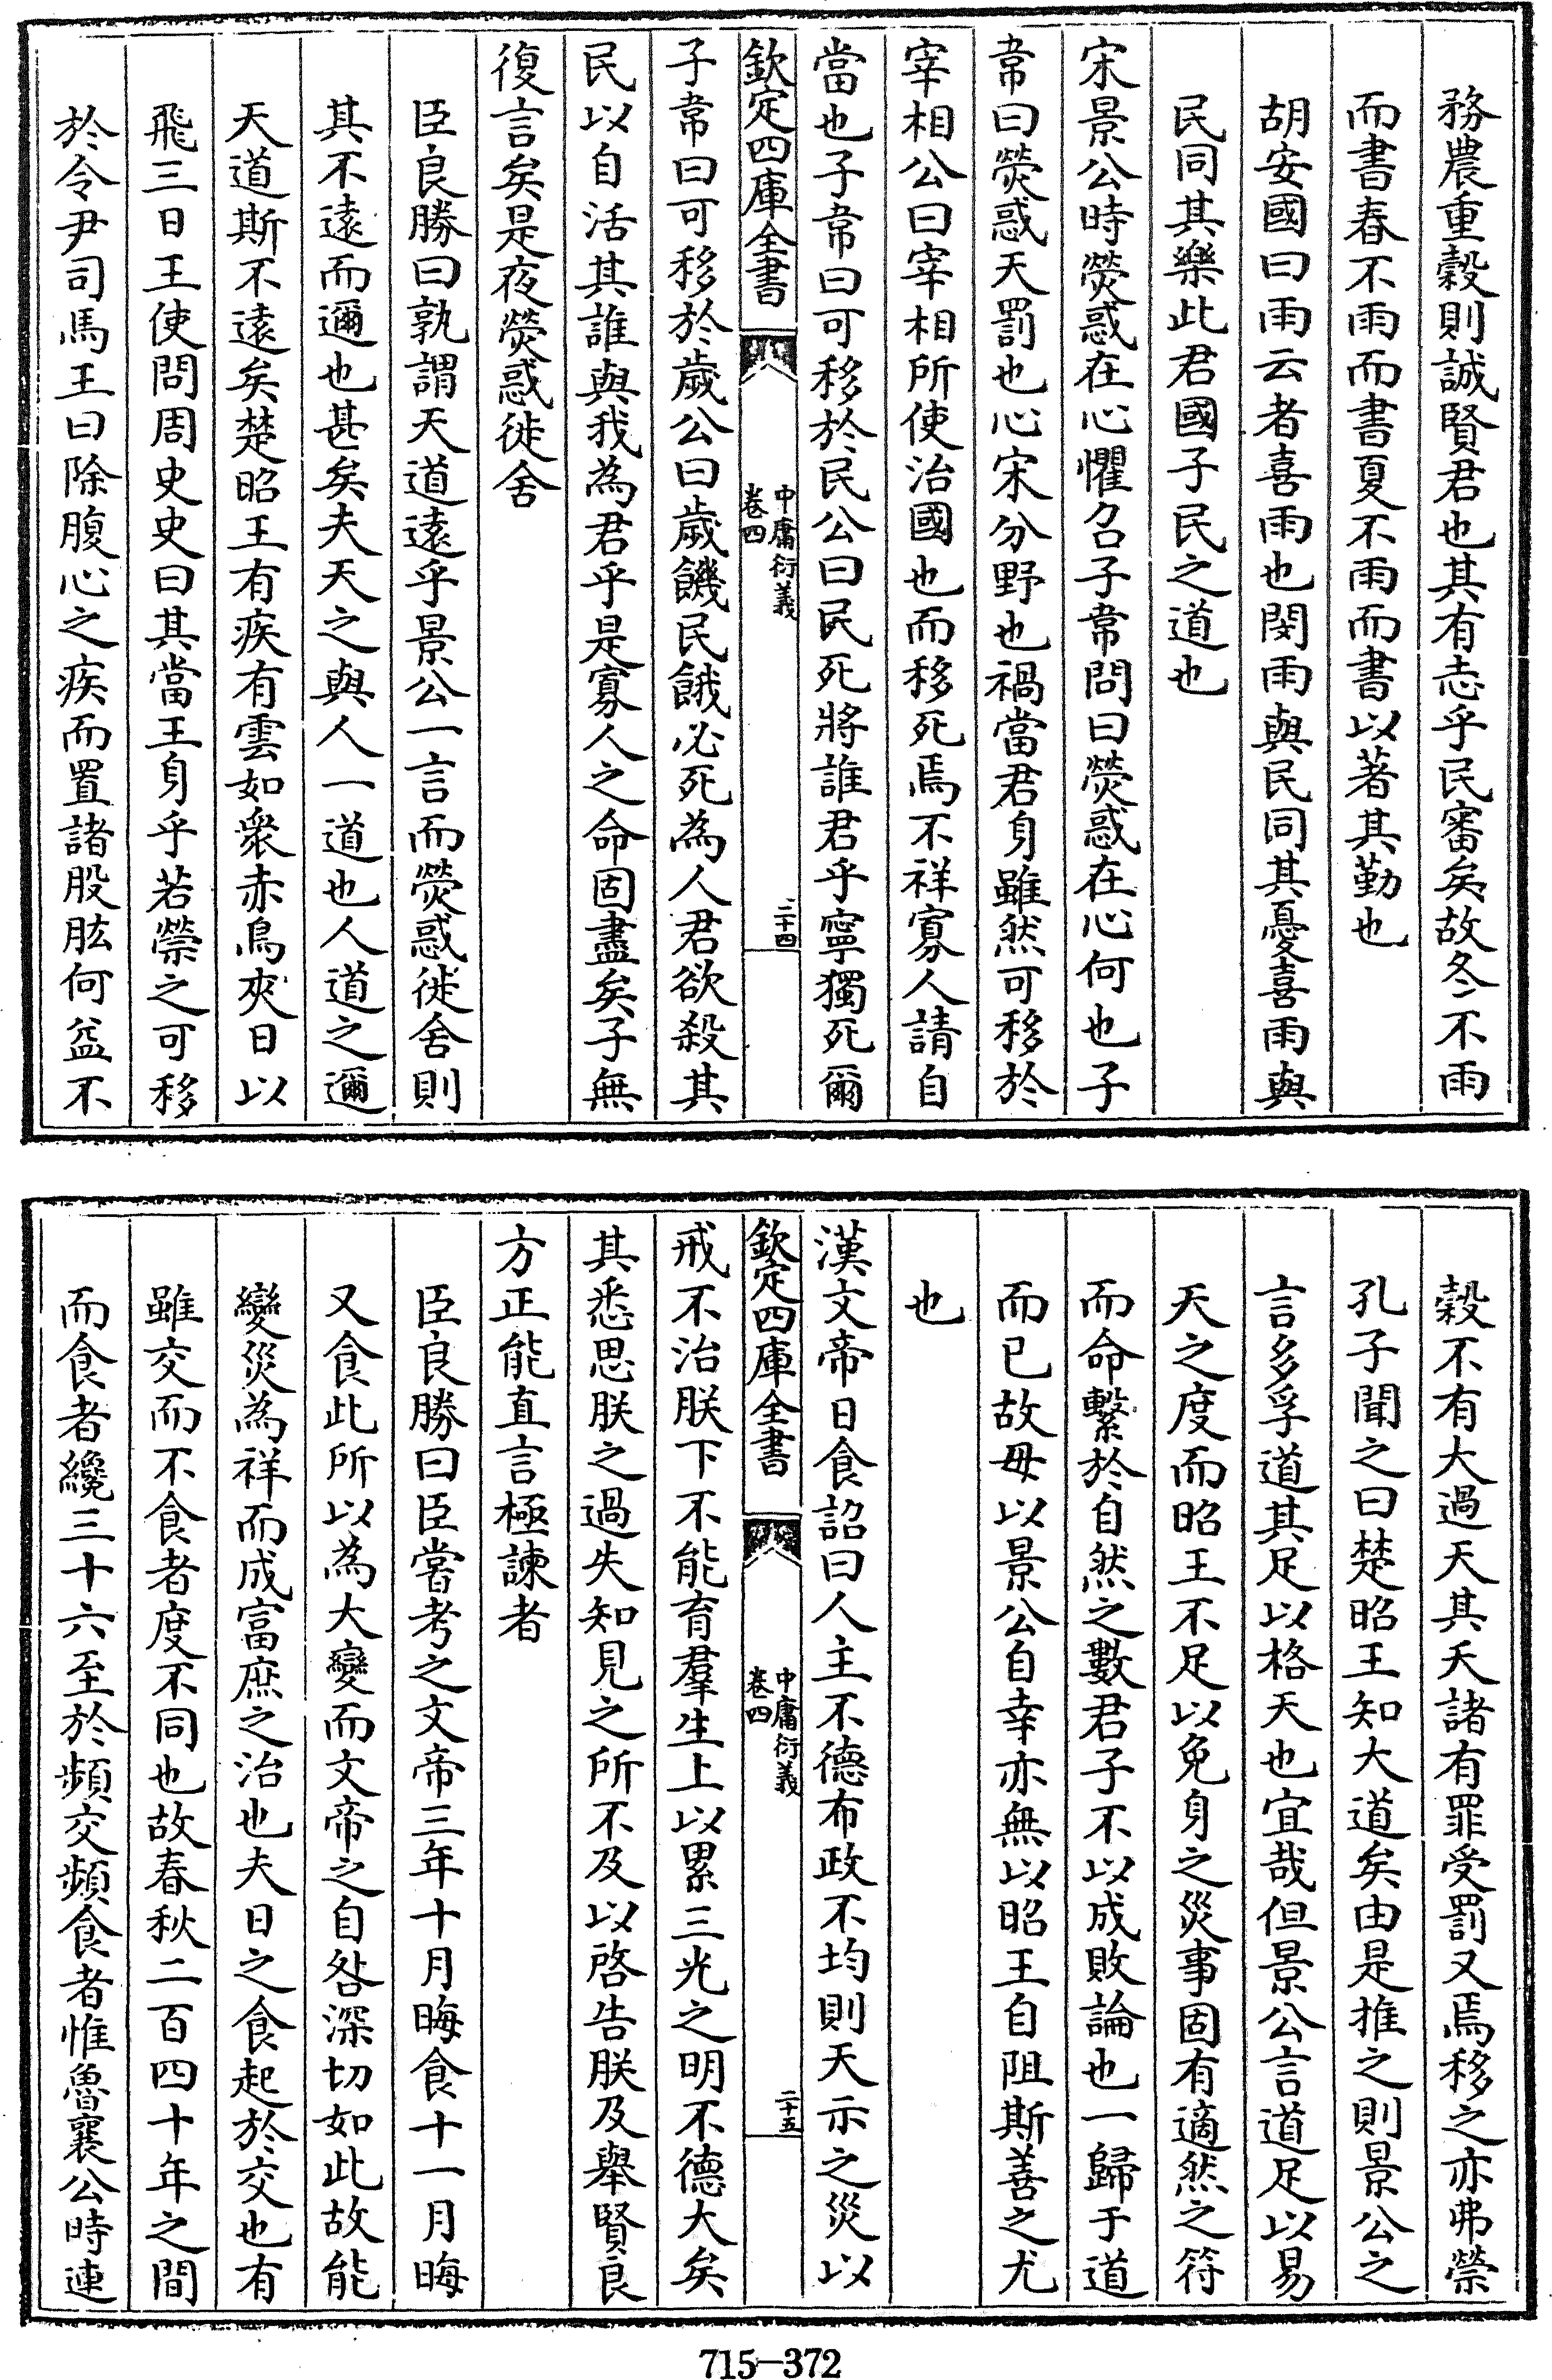 務農重穀則誠賢君也其有志乎民審矣故冬不雨
而書春不雨而書夏不雨而書以著其勤也
胡安國曰雨云者喜雨也閔雨與民同其憂喜雨與
民同其樂此君國子民之道也
宋景公時熒惑在心懼召子韋問曰熒惑在心何也子
韋曰熒惑天罰也心宋分野也禍當君身雖然可移於
宰相公曰宰相所使治國也而移死焉不祥寡人請自
當也子韋曰可移於民公曰民死將誰君乎寧獨死爾
欽定四庫全書
中庸衍義
卷四
二十四
子韋曰可移於歲公曰歲饑民餓必死為人君欲殺其
民以自活其誰與我為君乎是寡人之命固盡矣子無
復言矣是夜熒惑徙舍
臣良勝曰孰謂天道遠乎景公一言而熒惑徙舍則
其不遠而邇也甚矣夫天之與人一道也人道之邇
天道斯不遠矣楚昭王有疾有雲如衆赤鳥夾日以
飛三日王使問周史史曰其當王身乎若禜之可移
於令尹司馬王曰除腹心之疾而置諸股肱何益不
穀不有大過天其夭諸有罪受罰又焉移之亦弗禜
孔子聞之曰楚昭王知大道矣由是推之則景公之
言多孚道其足以格天也宜哉但景公言道足以易
天之度而昭王不足以免身之災事固有適然之符
而命繫於自然之數君子不以成敗論也一歸于道
而已故毋以景公自幸亦無以昭王自阻斯善之尤
也
漢文帝日食詔曰人主不德布政不均則天示之災以
欽定四庫全書
中庸衍義
卷四
二十五
戒不治朕下不能育羣生上以累三光之明不德大矣
其悉思朕之過失知見之所不及以啓告朕及舉賢良
方正能直言極諫者
臣良勝曰臣嘗考之文帝三年十月晦食十一月晦
又食此所以為大變而文帝之自咎深切如此故能
變災為祥而成富庶之治也夫日之食起於交也有
雖交而不食者度不同也故春秋二百四十年之間
而食者纔三十六至於頻交頻食者惟魯襄公時連
715-372